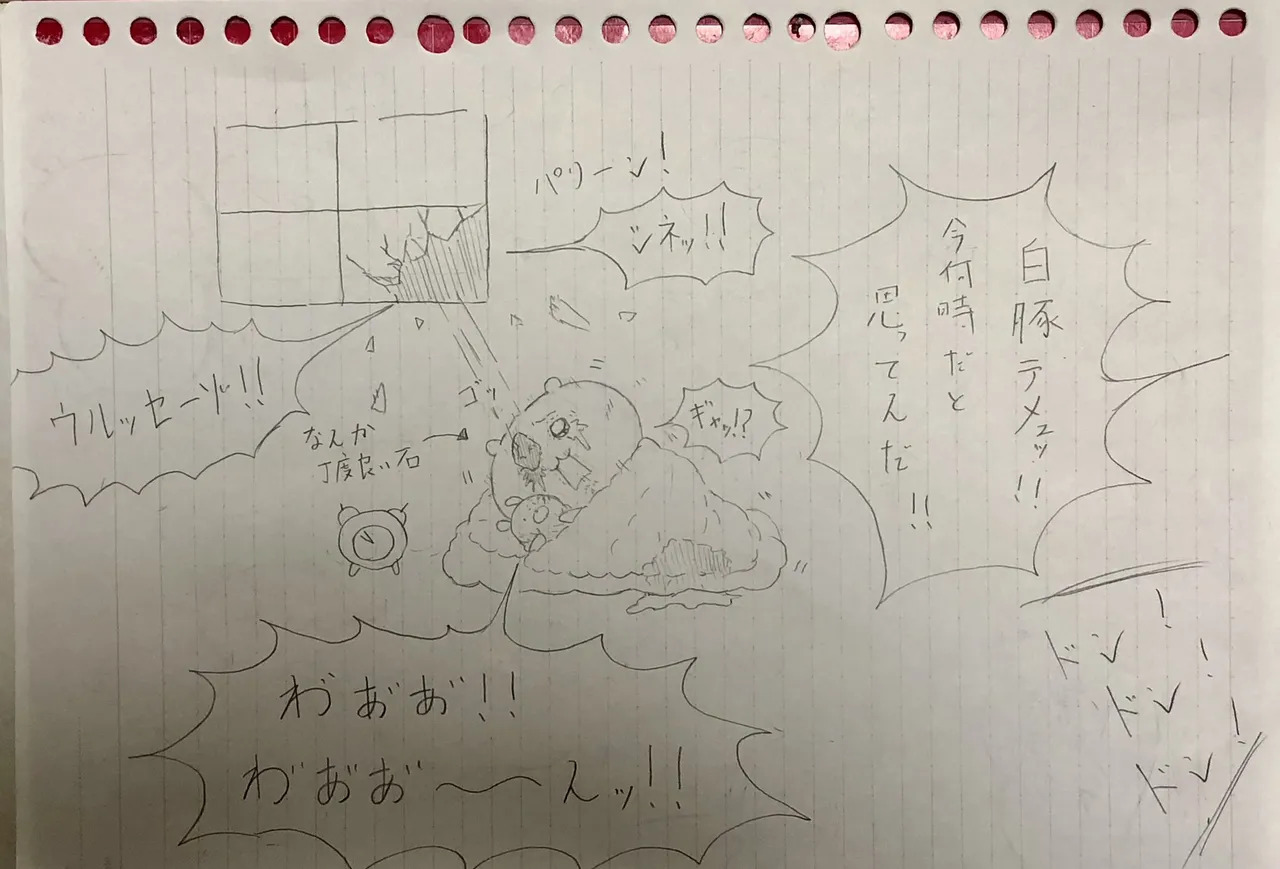 白豚テメェッ!!
今何時だと
思ってんだ!!
パリーン!
シネッ!!
ウルッセーゾ!!
ゴッ
なんか
丁度良い石
ギャッ!?
わ゛あ゛あ゛!!
わ゛あ゛あ゛〜〜んッ!!
ドン!
ドン!
ドン!